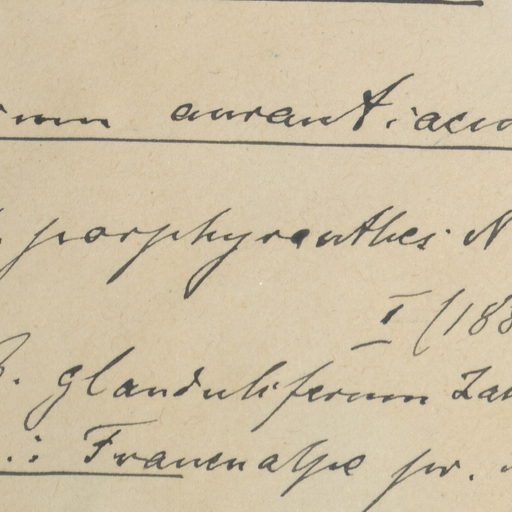 aurantiacu
porphyranthes N
I (188
β. glanduliferum Zah
: Frauenalpe pr.